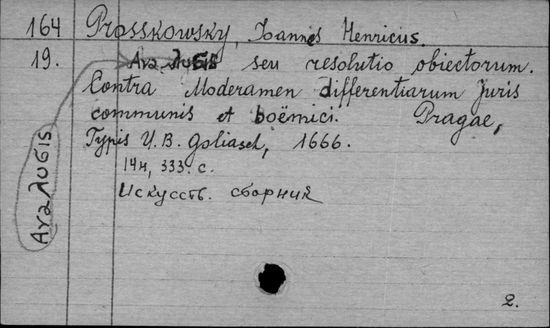 164 Prosskowsky, Ioannes Henricus.
19. Αναλυσις seu resolutio obiectorum.
Contra Moderamen differentiarum Juris
communis et boëmici. Pragae,
Typis U. B. Goliasch, 1666.
14н, 333. с.
Искусств. сборник
Ανάλυσις
2.